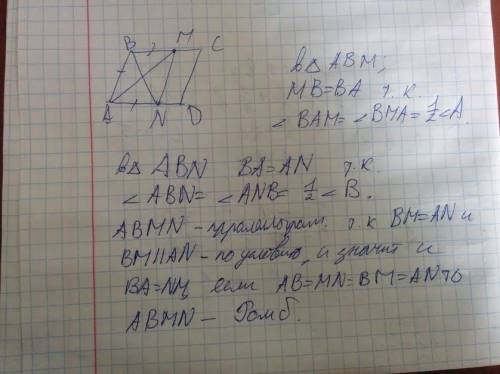 B M C
A N D
в △ ABM;
MB=BA т.к.
∠BAM=∠BMA=1/2∠A.
в △ ABN BA=AN т.к.
∠ABN=∠ANB=1/2∠B.
ABMN - параллелограм. т.к BM=AN и
BM||AN - по условию, и значит и
BA=NM, если AB=MN=BM=AN то
ABMN - Ромб.